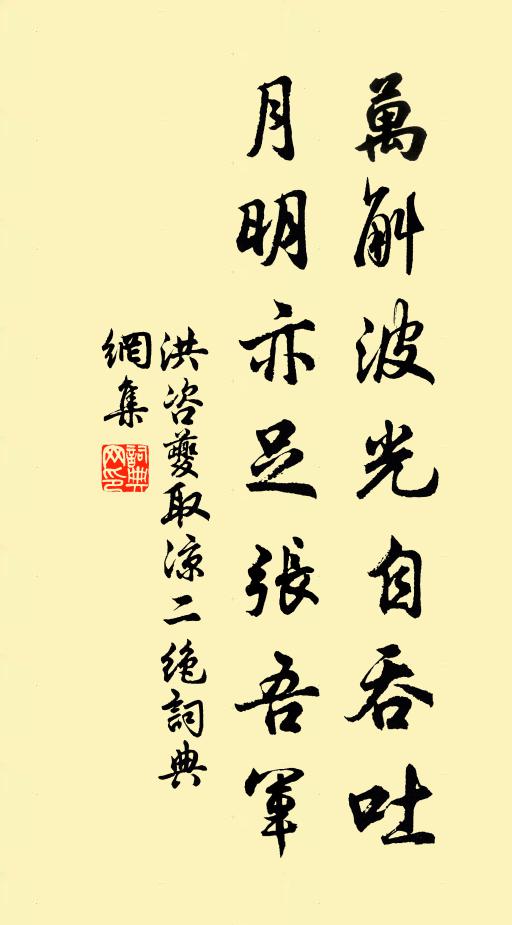 萬斛波光自吞吐
月明亦足張吾軍
洪咨夔取涼二絕詞典
網集
詞典網印